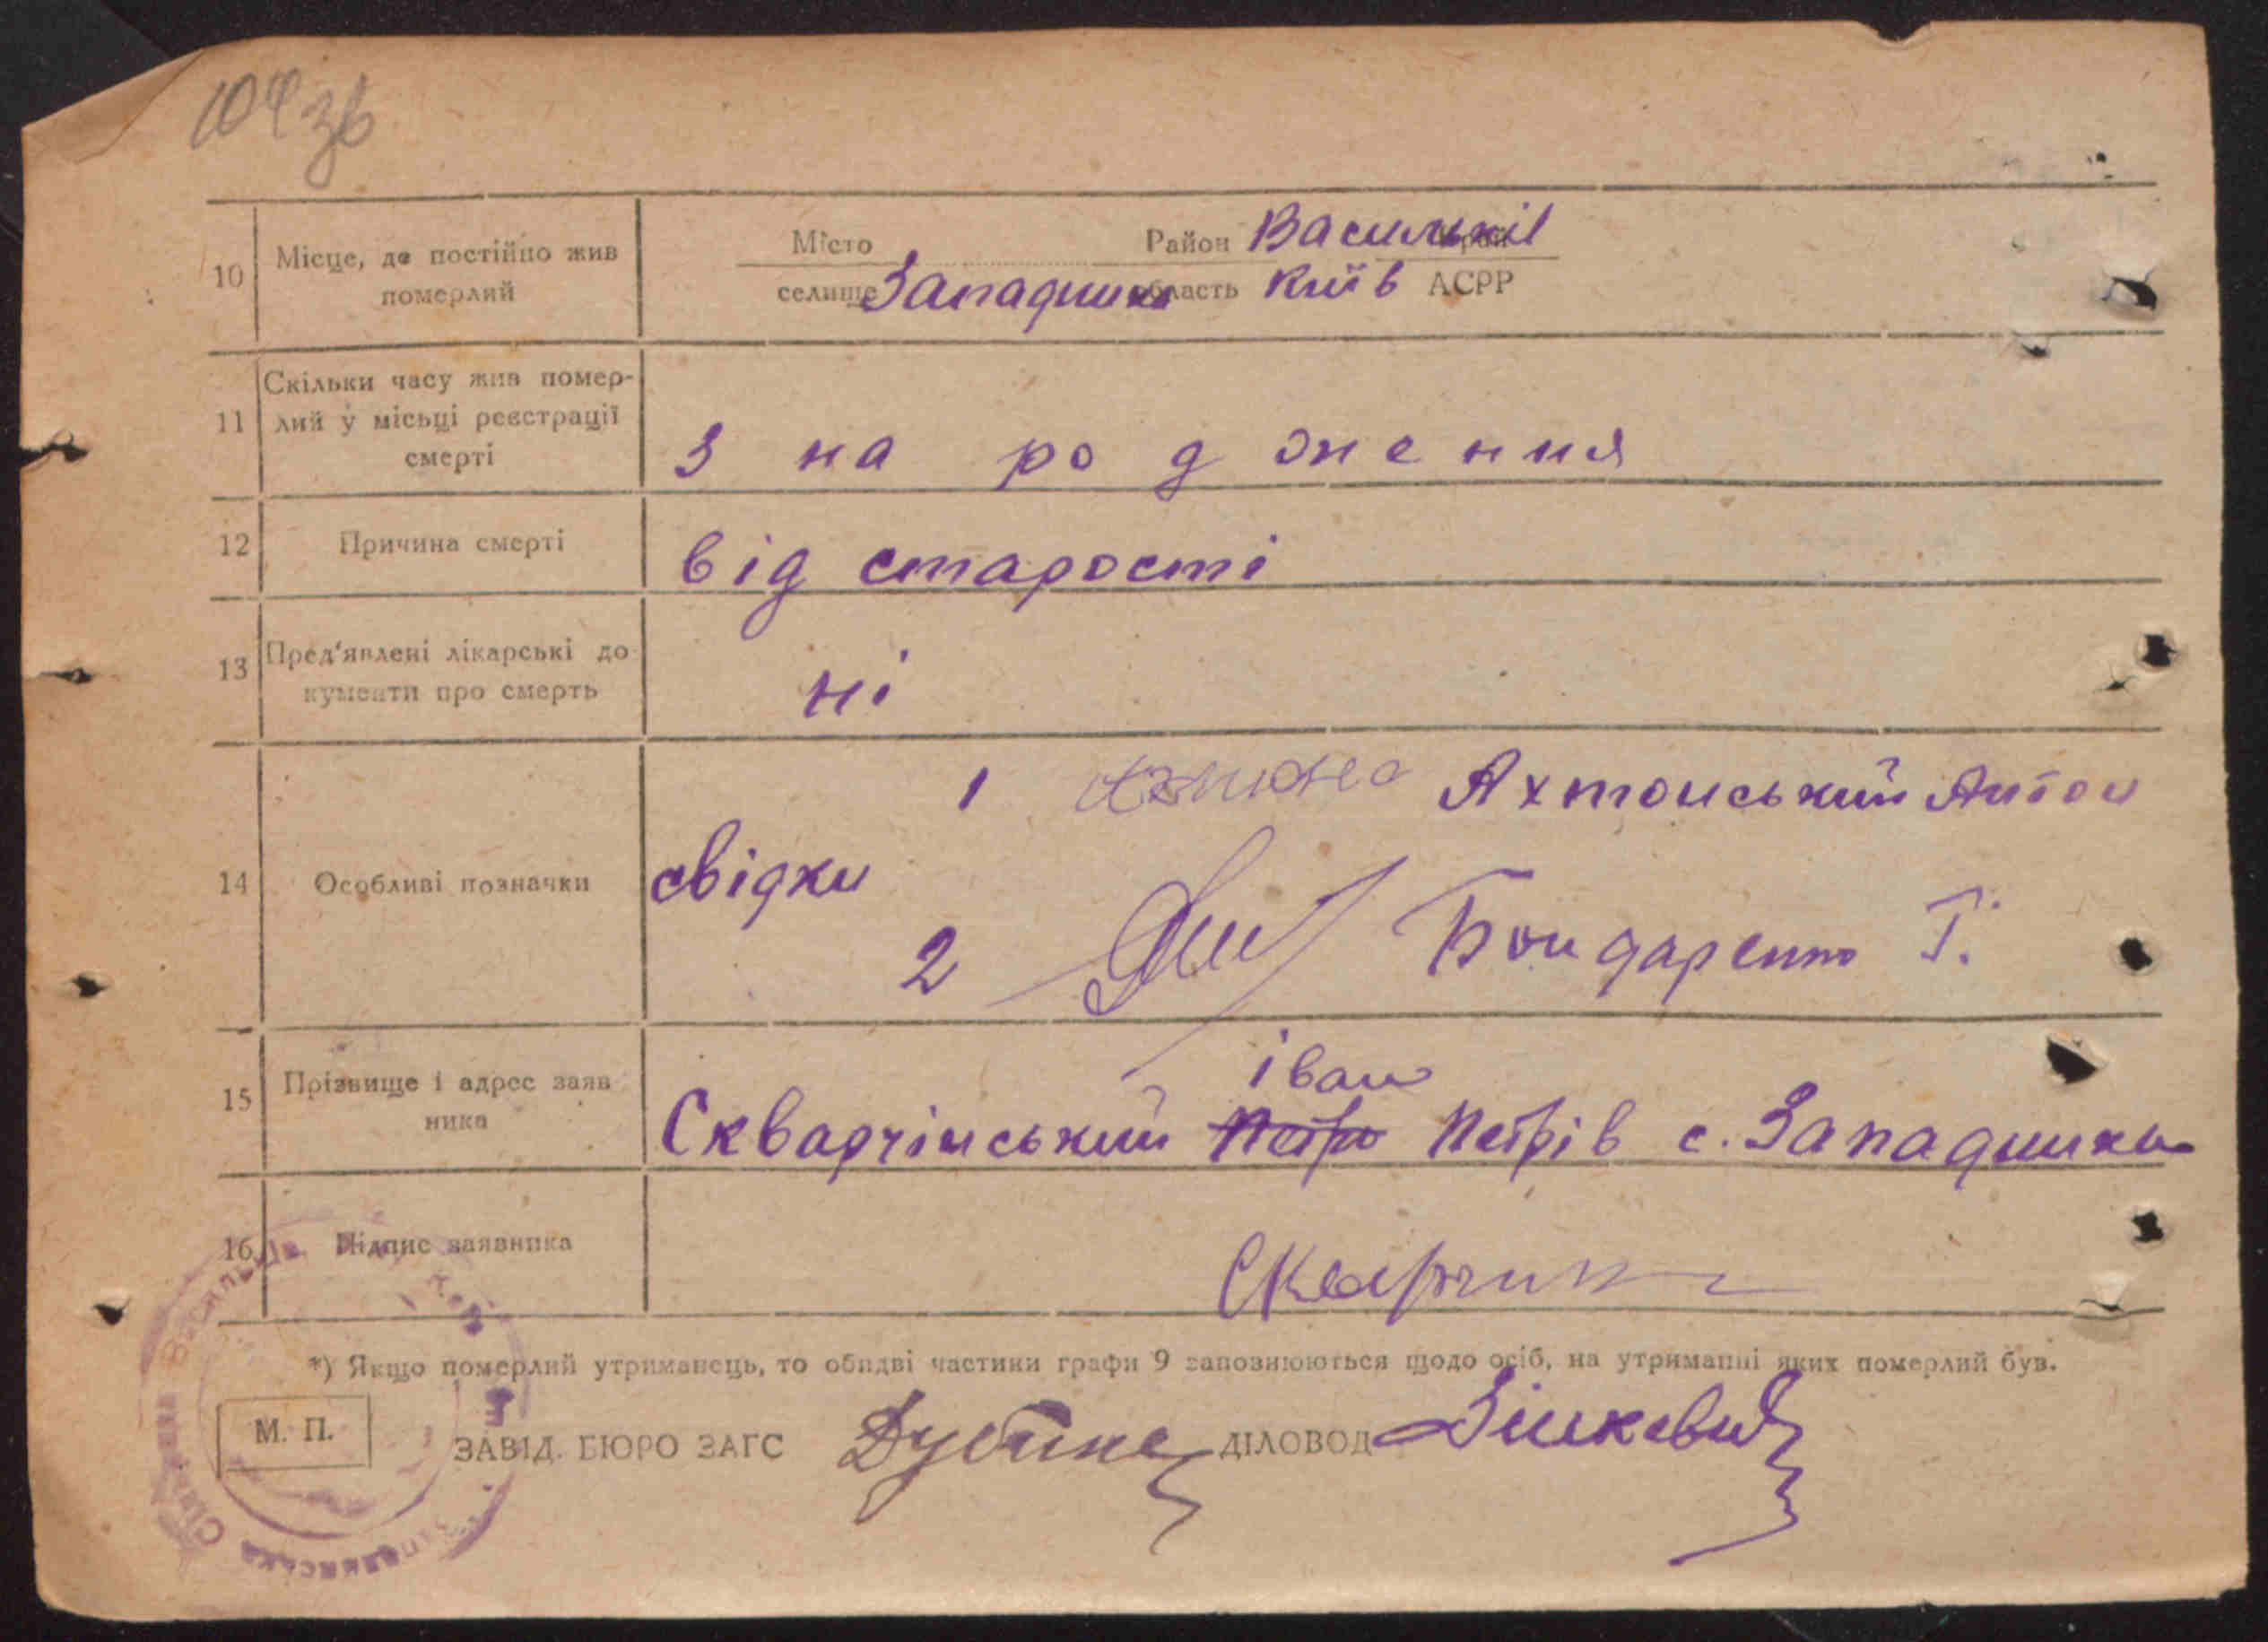 104зв
10 Місце, де постійно жив померлий
Місто Район Васильків край
селище Западинка область Київ АСРР
11 Скільки часу жив помер-
лий у місьці реєстрації
смерті
з народження
12 Причина смерті від старості
13 Пред'явлені лікарські до
кументи про смерть
ні
14 Особливі позначки
1 Ахтонський Антон
свідки
2 Бондаренко Г.
15 Прізвище і адрес заяв
ника
іван
Скварчінський Петро Петрів с. Западинка
16 Підпис заявника
*) Якщо померлий утриманець, то обидві частини графи 9 заповнюються щодо осіб, на утриманні яких померлий був.
М. П.
ЗАВІД. БЮРО ЗАГС ДІЛОВОД Зінкевич